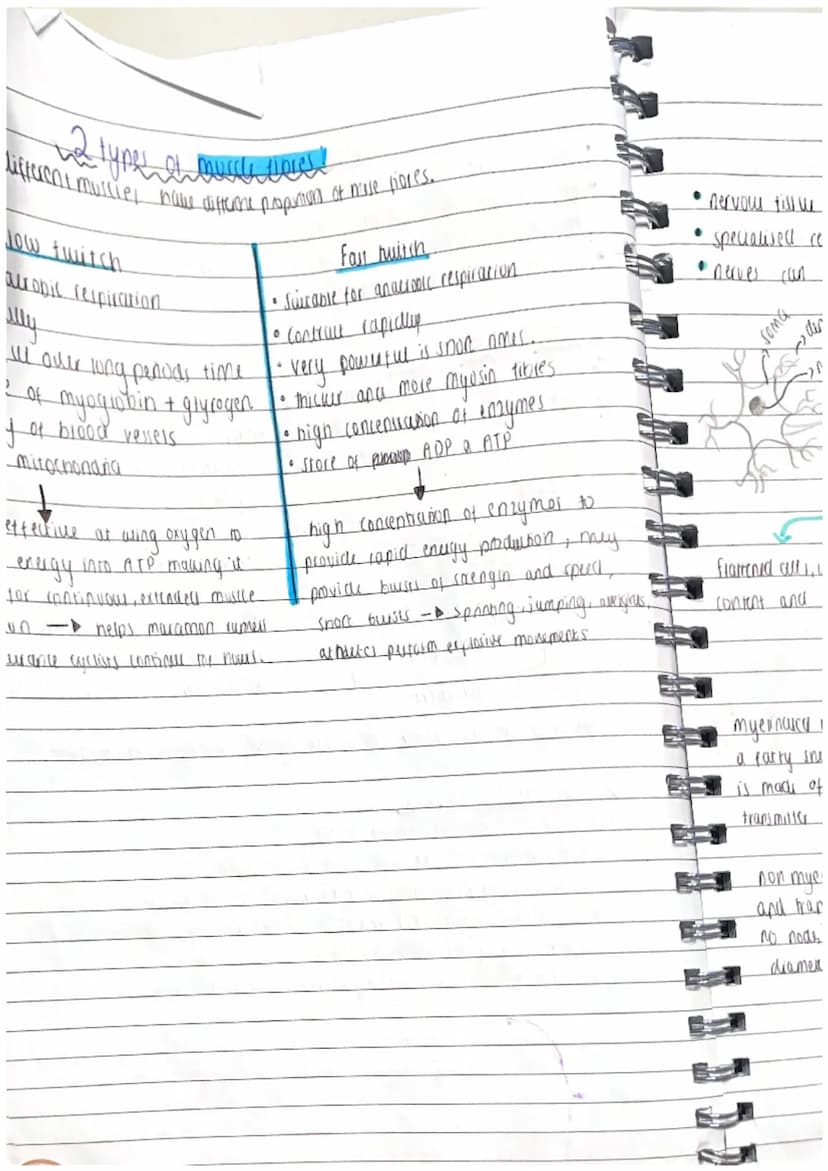 2 types of muscle fibres!
different muscles have different proportions of these fibres.
low twitch
aerobic respiration
lly
over long periods time
of myoglobin + glycogen
y of blood vessels
mitochondria
effective at using oxygen to
energy into ATP making it
for continuous, extended muscle
on → helps marathon runners
urance cyclists continue for hours.
Fast twitch
• suitable for anaerobic respiration
• contract rapidly
• very powerful is short times.
• thicker and more myosin fibres
• high concentration of enzymes
• store of ADP a ATP
high concentration of enzymes to
provide rapid energy production, they
provide bursts of strength and speed,
short bursts → sprinting, jumping,
athletes perform explosive movements
• nervous tissue
• specialised ce
• nerves can
soma
den
flattened cells,
content and
myelinated
a fatty she
is made of
transmitte
non mye
and tran
no nodes
diamet